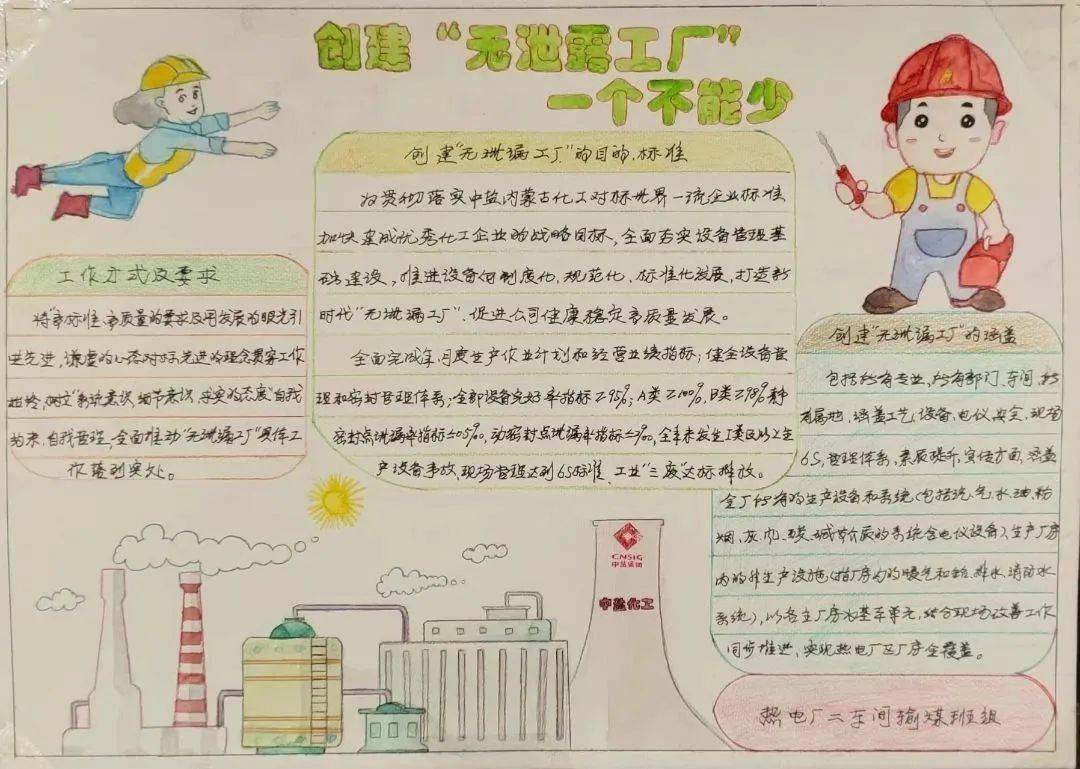 创建“无泄露工厂”
一个不能少
创建“无泄漏工厂”的目的、标准
为贯彻落实中盐内蒙古化工对标世界一流企业标准
加快建成优秀化工企业的战略目标，全面夯实设备管理基
础建设，推进设备向制度化、规范化、标准化发展，打造新
时代“无泄漏工厂”，促进公司健康稳定高质量发展。
全面完成年、月度生产作业计划和经营业绩指标；健全设备管
理和密封管理体系；全部设备完好率指标≥95%；A类≥100%，B类≥98%静
密封点泄漏率指标≤0.5‰，动密封点泄漏率指标≤2‰，全年未发生二类及以上生
产设备事故，现场管理达到6S标准、工业“三废”达标排放。
工作方式及要求
将“高标准、高质量的要求及用发展的眼光引
进先进，谦虚的心态对标先进的理念贯穿工作
始终，树立“系统意识、细节意识、求实的态度”自我
约束，自我管理，全面推动“无泄漏工厂”具体工
作落到实处。
创建“无泄漏工厂”的涵盖
包括所有专业，所有部门、车间，所
有属地，涵盖工艺、设备、电仪、安全、现场
6S、管理体系、素质提升、宣传方面，涵盖
全厂所有的生产设备和系统（包括汽、气、水、油、粉
烟、灰、酸、碱等介质的系统含电仪设备）、生产厂房
内的非生产设施（指厂房内的暖气和给、排水、消防水
系统），以各主厂房为基本单元，结合现场改善工作
同步推进，实现热电厂区厂房全覆盖。
CNSIG
中盐集团
中盐化工
热电厂二车间输煤班组